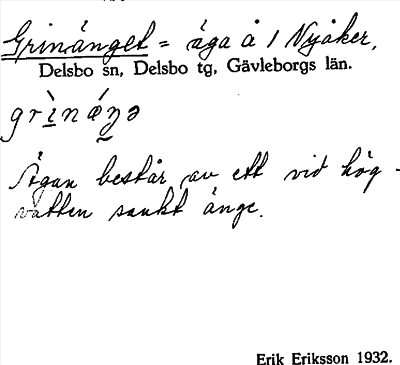 Grinänget = äga å 1 Nyåker,
Delsbo sn, Delsbo tg, Gävleborgs län.
grìnǽŋə
Ägan består av ett vid hög-
vatten sankt änge.
Erik Eriksson 1932.